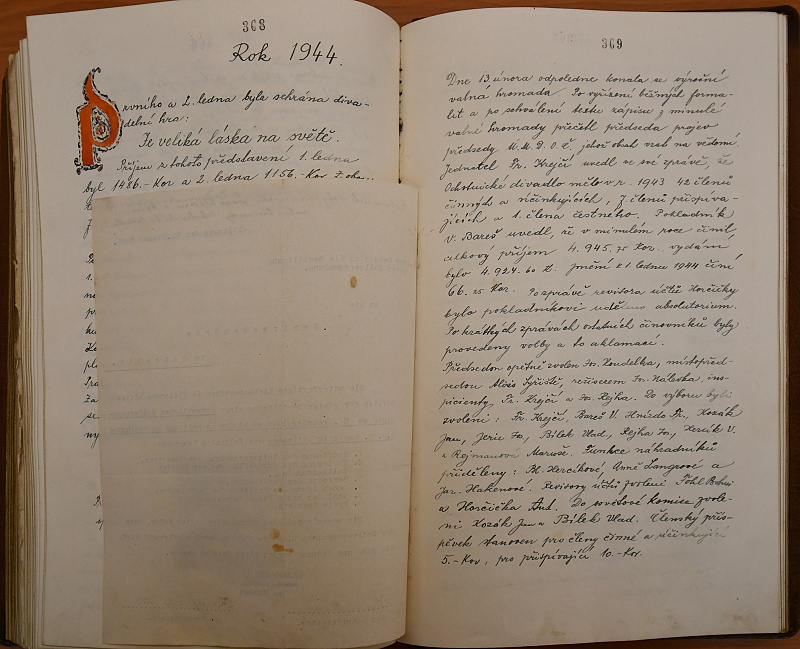 368
Rok 1944.
Prvního a 2. ledna byla sehrána diva-
delní hra:
Je veliká láska na světě.
Příjem z tohoto představení 1. ledna
byl 1486.- Kor a 2. ledna 1156.- Kor. Z oba..
369
Dne 13. února odpoledne konala se výroční
valná hromada. Po vyřízení běžných forma-
lit a po schválení textu zápisu z minulé
valné hromady přečetl předseda projev
předsedy Ú.M.D.O.Č., jehož obsah vzat na vědomí.
Jednatel Fr. Krejčí uvedl ve své zprávě, že
Ochotnické divadlo mělo v r. 1943 42 členů
činných a účinkujících, 7 členů přispíva-
jících a 1. člena čestného. Pokladník
V. Bareš uvedl, že v minulém roce činil
celkový příjem 4.945.75 Kor. vydání
bylo 4.924.60 K. Jmění k 1 lednu 1944 činí
66.25 Kor. Po zprávě revisora účtů Horčičky
bylo pokladníkovi uděleno absolutorium.
Po krátkých zprávách ostatních činovníků byly
provedeny volby a to aklamací.
Předsedou opětně zvolen Jos. Koudelka, místopřed-
sedou Alois Syřiště, režiserem Jos. Náleska, ins-
picienty Fr. Krejčí a Jos. Rejha. Do výboru byli
zvoleni: Fr. Krejčí, Bareš V. Hnízdo Fr., Kozák
Jan, Jerie Jos, Bílek Vlad., Rejha Jos, Hercík V.
a Rejmanová Maruše. Funkce náhradníků
přiděleny: Bl. Hercíkové, Anně Langrové a
Jar. Hakenové. Revisory účtů zvoleni Pohl
a Horčička Ant. Do svétové komise zvole-
ni Kozák Jan a Bílek Vlad. Členský přís-
pěvek stanoven pro členy činné a účinkující
5.- Kor, pro přispívající 10.- Kor.